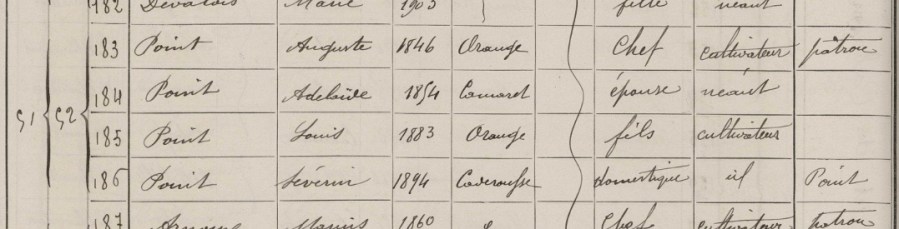 182 Marie 1903 fille néant
183 Point Auguste 1846 Orange Chef cultivateur patron
184 Point Adelaïde 1854 Camaret épouse néant
51 52 185 Point Louis 1883 Orange fils cultivateur
186 Point Séverin 1894 Caderousse domestique id Point
187 1860 Chef cultivateur patron